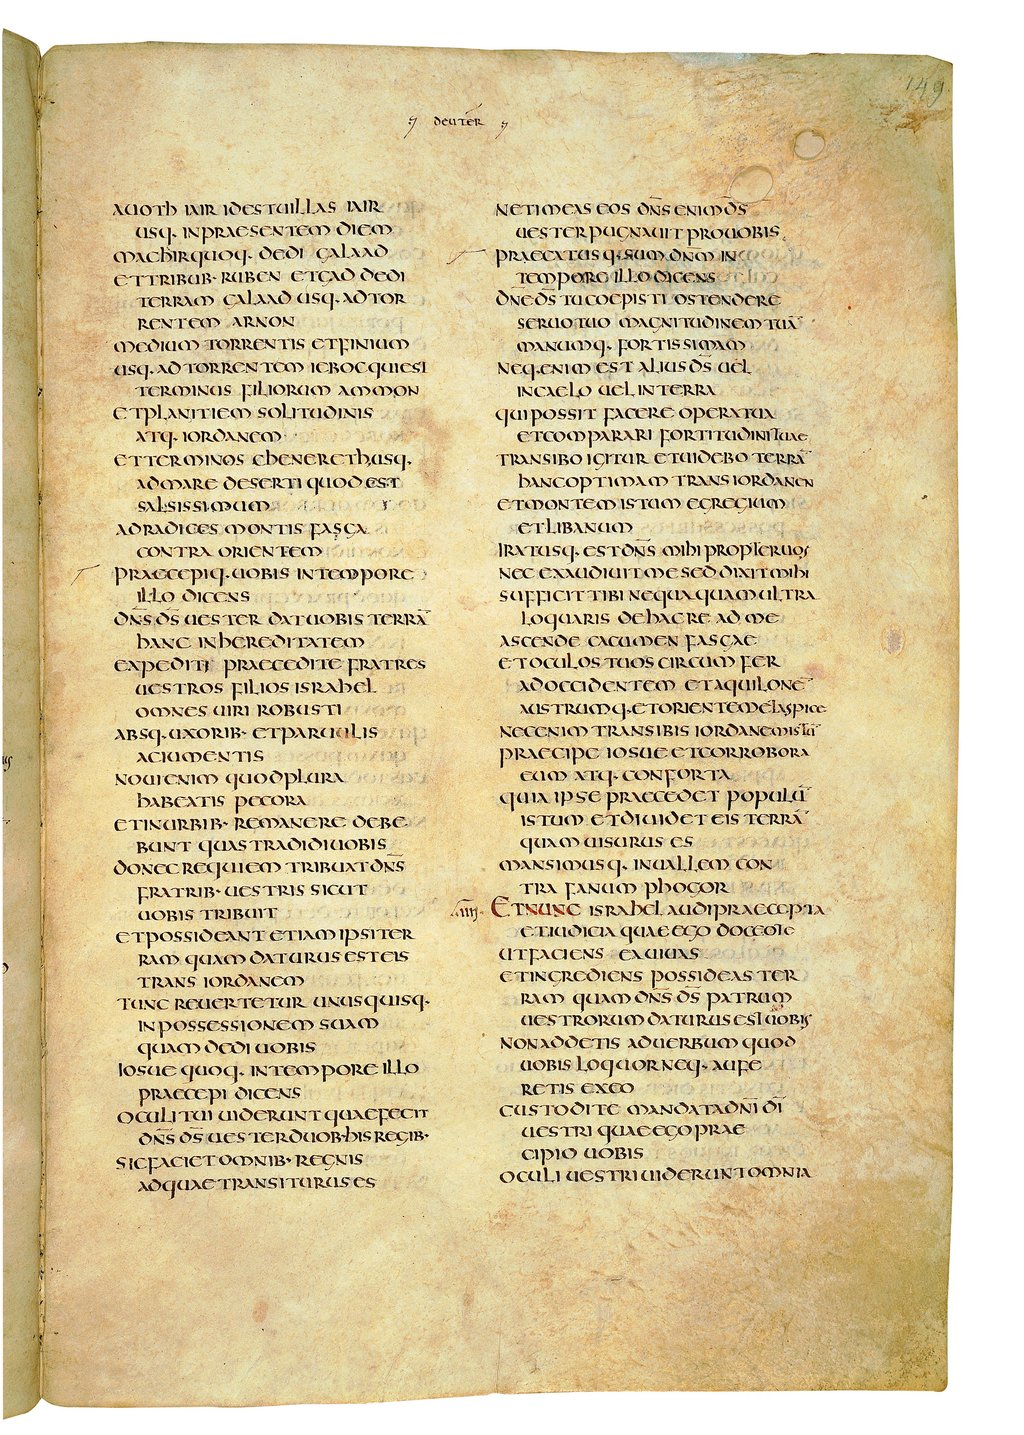 149
DEUTER
AUOTH IAIR IDEST UILLAS IAIR
USQ· IN PRAESENTEM DIEM
MACHIR QUOQ· DEDI GALAAD
ET TRIBUB· RUBEN ET GAD DEDI
TERRAM GALAAD USQ· AD TOR
RENTEM ARNON
MEDIUM TORRENTIS ET FINIUM
USQ· AD TORRENTEM IEBOC QUI EST
TERMINUS FILIORUM AMMON
ET PLANITIEM SOLITUDINIS
ATQ· IORDANEM
ET TERMINOS CHENERETH USQ·
AD MARE DESERTI QUOD EST
SALSISSIMUM
AD RADICES MONTIS FASGA
CONTRA ORIENTEM
PRAECEPIQ· UOBIS IN TEMPORE
ILLO DICENS
DN̅S D̅S UESTER DAT UOBIS TERRĀ
HANC IN HEREDITATEM
EXPEDITI PRAECEDITE FRATRES
UESTROS FILIOS ISRAHEL
OMNES UIRI ROBUSTI
ABSQ· UXORIB· ET PARUULIS
AC IUMENTIS
NOUI ENIM QUOD PLURA
HABEATIS PECORA
ET IN URBIB· REMANERE DEBE
BUNT QUAS TRADIDI UOBIS
DONEC REQUIEM TRIBUAT DN̅S
FRATRIB· UESTRIS SICUT
UOBIS TRIBUIT
ET POSSIDEANT ETIAM IPSI TER
RAM QUAM DATURUS EST EIS
TRANS IORDANEM
TUNC REUERTETUR UNUSQUISQ·
IN POSSESSIONEM SUAM
QUAM DEDI UOBIS
IOSUE QUOQ· IN TEMPORE ILLO
PRAECEPI DICENS
OCULI TUI UIDERUNT QUAE FECIT
DN̅S D̅S UESTER DUOB· HIS REGIB·
SIC FACIET OMNIB· REGNIS
AD QUAE TRANSITURUS ES
NE TIMEAS EOS DN̅S ENIM D̅S
UESTER PUGNAUIT PRO UOBIS
PRAECATUSQ· SUM DN̅M IN
TEMPORE ILLO DICENS
DN̅E D̅S TU COEPISTI OSTENDERE
SERUO TUO MAGNITUDINEM TUĀ
MANUMQ· FORTISSIMAM
NEQ· ENIM EST ALIUS D̅S UEL
IN CAELO UEL IN TERRA
QUI POSSIT FACERE OPERA TUA
ET COMPARARI FORTITUDINI TUAE
TRANSIBO IGITUR ET UIDEBO TERRĀ
HANC OPTIMAM TRANS IORDANEN
ET MONTEM ISTUM EGREGIUM
ET LIBANUM
IRATUSQ· EST DN̅S MIHI PROPTER UOS
NEC EXAUDIUIT ME SED DIXIT MIHI
SUFFICIT TIBI NEQUAQUAM ULTRA
LOQUARIS DE HAC RE AD ME
ASCENDE CACUMEN FASGAE
ET OCULOS TUOS CIRCUMFER
AD OCCIDENTEM ET AQUILONĒ
AUSTRUMQ· ET ORIENTEM ET ASPICE
NEC ENIM TRANSIBIS IORDANEM ISTŪ
PRAECIPE IOSUE ET CORROBORA
EUM ATQ· CONFORTA
QUIA IPSE PRAECEDET POPULŪ
ISTUM ET DIUIDET EIS TERRĀ
QUAM UISURUS ES
MANSIMUSQ· IN UALLEM CON
TRA FANUM PHOGOR
IIII ET NUNC ISRAHEL AUDI PRAECEPTA
ET IUDICIA QUAE EGO DOCEO TE
UT FACIENS EA UIUAS
ET INGREDIENS POSSIDEAS TER
RAM QUAM DN̅S D̅S PATRUM
UESTRORUM DATURUS EST UOBIS
NON ADDETIS AD UERBUM QUOD
UOBIS LOQUOR NEQ· AUFE
RETIS EX EO
CUSTODITE MANDATA DN̅I D̅I
UESTRI QUAE EGO PRAE
CIPIO UOBIS
OCULI UESTRI UIDERUNT OMNIA